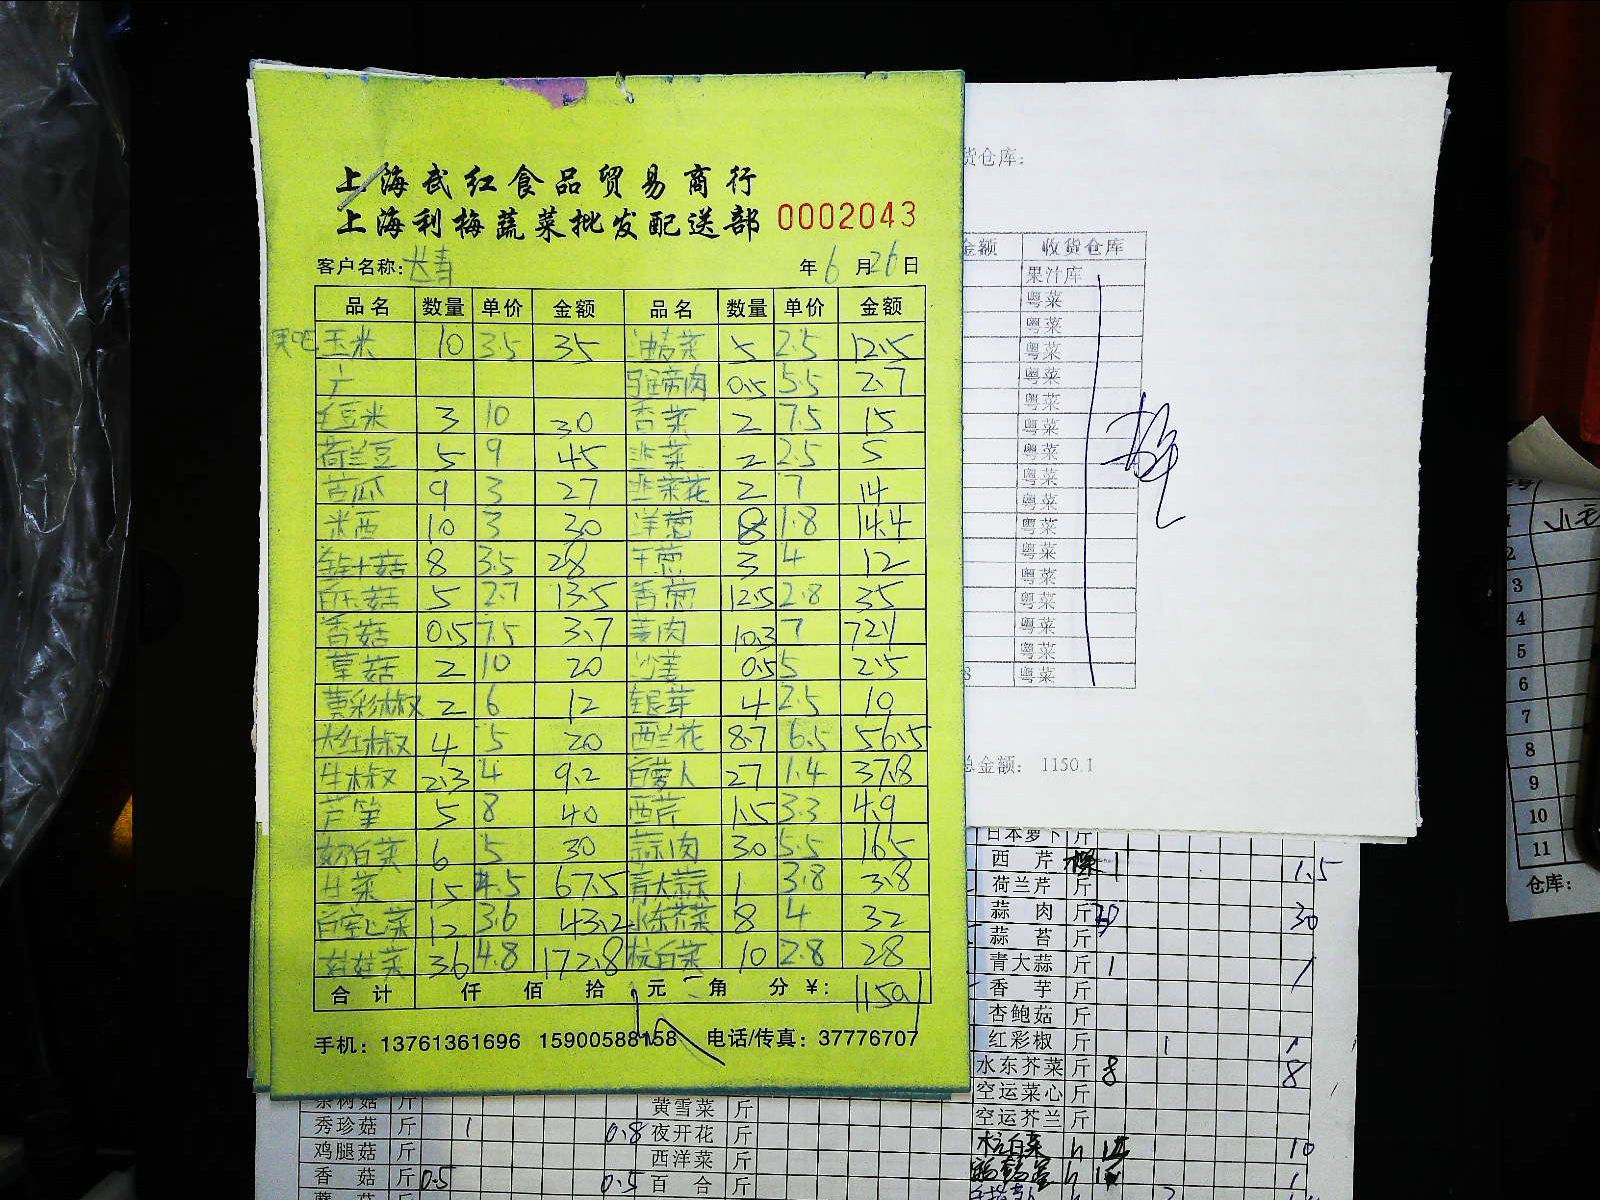 上海武红食品贸易商行
上海利梅蔬菜批发配送部 0002043
客户名称: 年 6 月 26 日
品名 数量 单价 金额 品名 数量 单价 金额
玉米 10 3.5 35 油麦菜 5 2.5 12.5
0.5 5.5 2.7
豆米 3 10 30 香菜 2 7.5 15
荷兰豆 5 9 45 韭菜 2 2.5 5
苦瓜 9 3 27 韭菜花 2 7 14
米西 10 3 30 洋葱 8 1.8 14.4
8 3.5 28 3 4 12
5 2.7 13.5 香葱 12.5 2.8 35
香菇 0.5 7.5 3.7 姜肉 10.3 7 72.1
草菇 2 10 20 沙姜 0.5 5 2.5
黄彩椒 2 6 12 银芽 4 2.5 10
大红椒 4 5 20 西兰花 8.7 6.5 56.5
牛椒 2.3 4 9.2 白萝卜 27 1.4 37.8
芦笋 5 8 40 西芹 1.5 3.3 4.9
奶白菜 6 5 30 蒜肉 30 5.5 165
15 4.5 67.5 青大蒜 1 3.8 3.8
12 3.6 43.2 水东芥菜 8 4 32
娃娃菜 36 4.8 172.8 杭白菜 10 2.8 28
合计 仟 佰 拾 元 角 分 ¥: 1150.1
手机: 13761361696 15900588158 电话/传真: 37776707
货仓库:
金额 收货仓库
果汁库
粤菜
粤菜
粤菜
粤菜
粤菜
粤菜
粤菜
粤菜
粤菜
粤菜
粤菜
粤菜
粤菜
粤菜
粤菜
8 粤菜
总金额: 1150.1
日本萝卜 斤
西芹 1 1.5
荷兰芹 斤
蒜肉 斤 30
蒜苔 斤
青大蒜 斤 1 1
香芋 斤
杏鲍菇 斤
红彩椒 斤 1 1
水东芥菜 斤 8 8
空运菜心 斤
空运芥兰 斤
杭白菜 10
茶树菇 斤 黄雪菜 斤
秀珍菇 斤 1 0.8 夜开花 斤
鸡腿菇 斤 西洋菜 斤
香菇 斤 0.5 0.5 百合 斤
2
3
4
5
6
7
8
9
10
11
仓库: